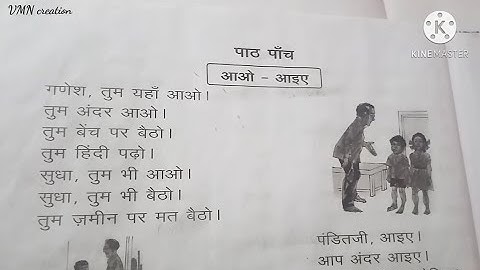 VMN creation
K
KINEMASTER
पाठ पाँच
आओ - आइए
गणेश, तुम यहाँ आओ।
तुम अंदर आओ।
तुम बेंच पर बैठो।
तुम हिंदी पढ़ो।
सुधा, तुम भी आओ।
सुधा, तुम भी बैठो।
तुम ज़मीन पर मत बैठो।
पंडितजी, आइए।
आप अंदर आइए।